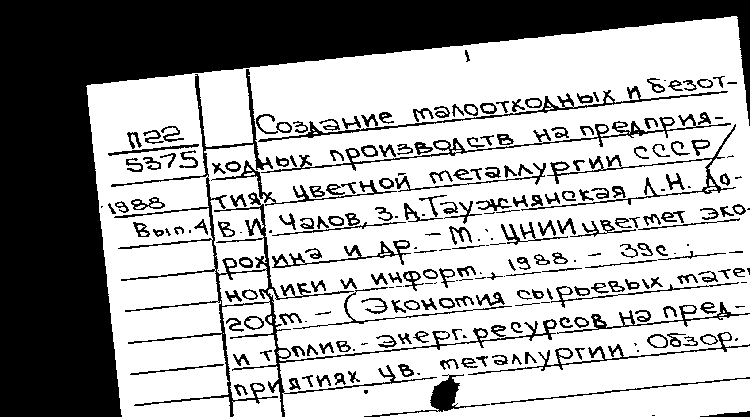 Создание малоотходных и безот-
П22
5375
ходных производств на предприя-
тиях цветной металлургии СССР /
1988
Вып. 4
В.И. Чалов, З.А. Таужнянская, Л.Н. До-
рохина и др. - М.: ЦНИИцветмет эко-
номики и информ., 1988. - 39с.;
20см. - (Экономия сырьевых, мате
и топлив.-энерг. ресурсов на пред-
приятиях цв. металлургии: Обзор.